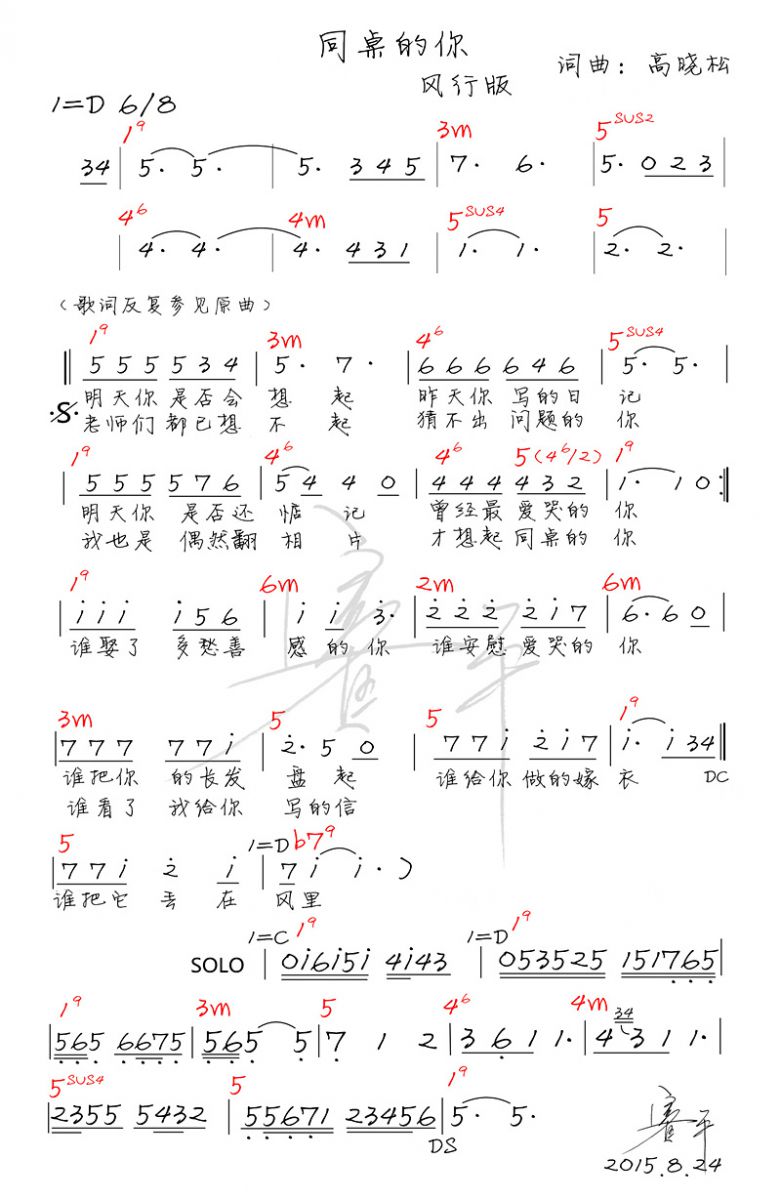 同桌的你
风行版
词曲：高晓松
1=D 6/8
1⁹ 3m 5SUS2
34 | 5· 5· | 5· 345 | 7· 6· | 5· 023 |
4⁶ 4m 5SUS4 5
| 4· 4· | 4· 431 | 1· 1· | 2· 2· |
（歌词反复参见原曲）
1⁹ 3m 4⁶ 5SUS4
‖ 555 534 | 5· 7· | 666 646 | 5· 5· |
明天你 是否会 想 起 昨天你 写的日 记
老师们 都已想 不 起 猜不出 问题的 你
1⁹ 4⁶ 4⁶ 5(4⁶/2) 1⁹
| 555 576 | 54 40 | 444 432 | 1· 10 :‖
明天你 是否还 惦 记 曾经最 爱哭的 你
我也是 偶然翻 相 片 才想起 同桌的 你
1⁹ 6m 2m 6m
| i i i i56 | i i 3̇· | 2̇2̇2̇ 2̇i7 | 6· 60 |
谁娶了 多愁善 感的 你 谁安慰 爱哭的 你
3m 5 5 1⁹
| 777 77i | 2̇· 50 | 77i 2̇i7 | i· i34 ‖
谁把你 的长发 盘起 谁给你 做的嫁 衣 DC
谁看了 我给你 写的信
5 1=D b7⁹
| 77i 2̇ i | 7i i· )
谁把它 丢 在 风里
1=C 1⁹ 1=D 1⁹
SOLO | 0i6i5i 4i43 | 053525 151765 |
1⁹ 3m 5 4⁶ 4m
| 565 6675 | 565 5 5 | 7 1 2 | 3 6 1 1· | 34 4 3 1 1· |
5SUS4 5 1⁹
| 2355 5432 | 55671 23456 | 5· 5·
DS
赛平
2015.8.24